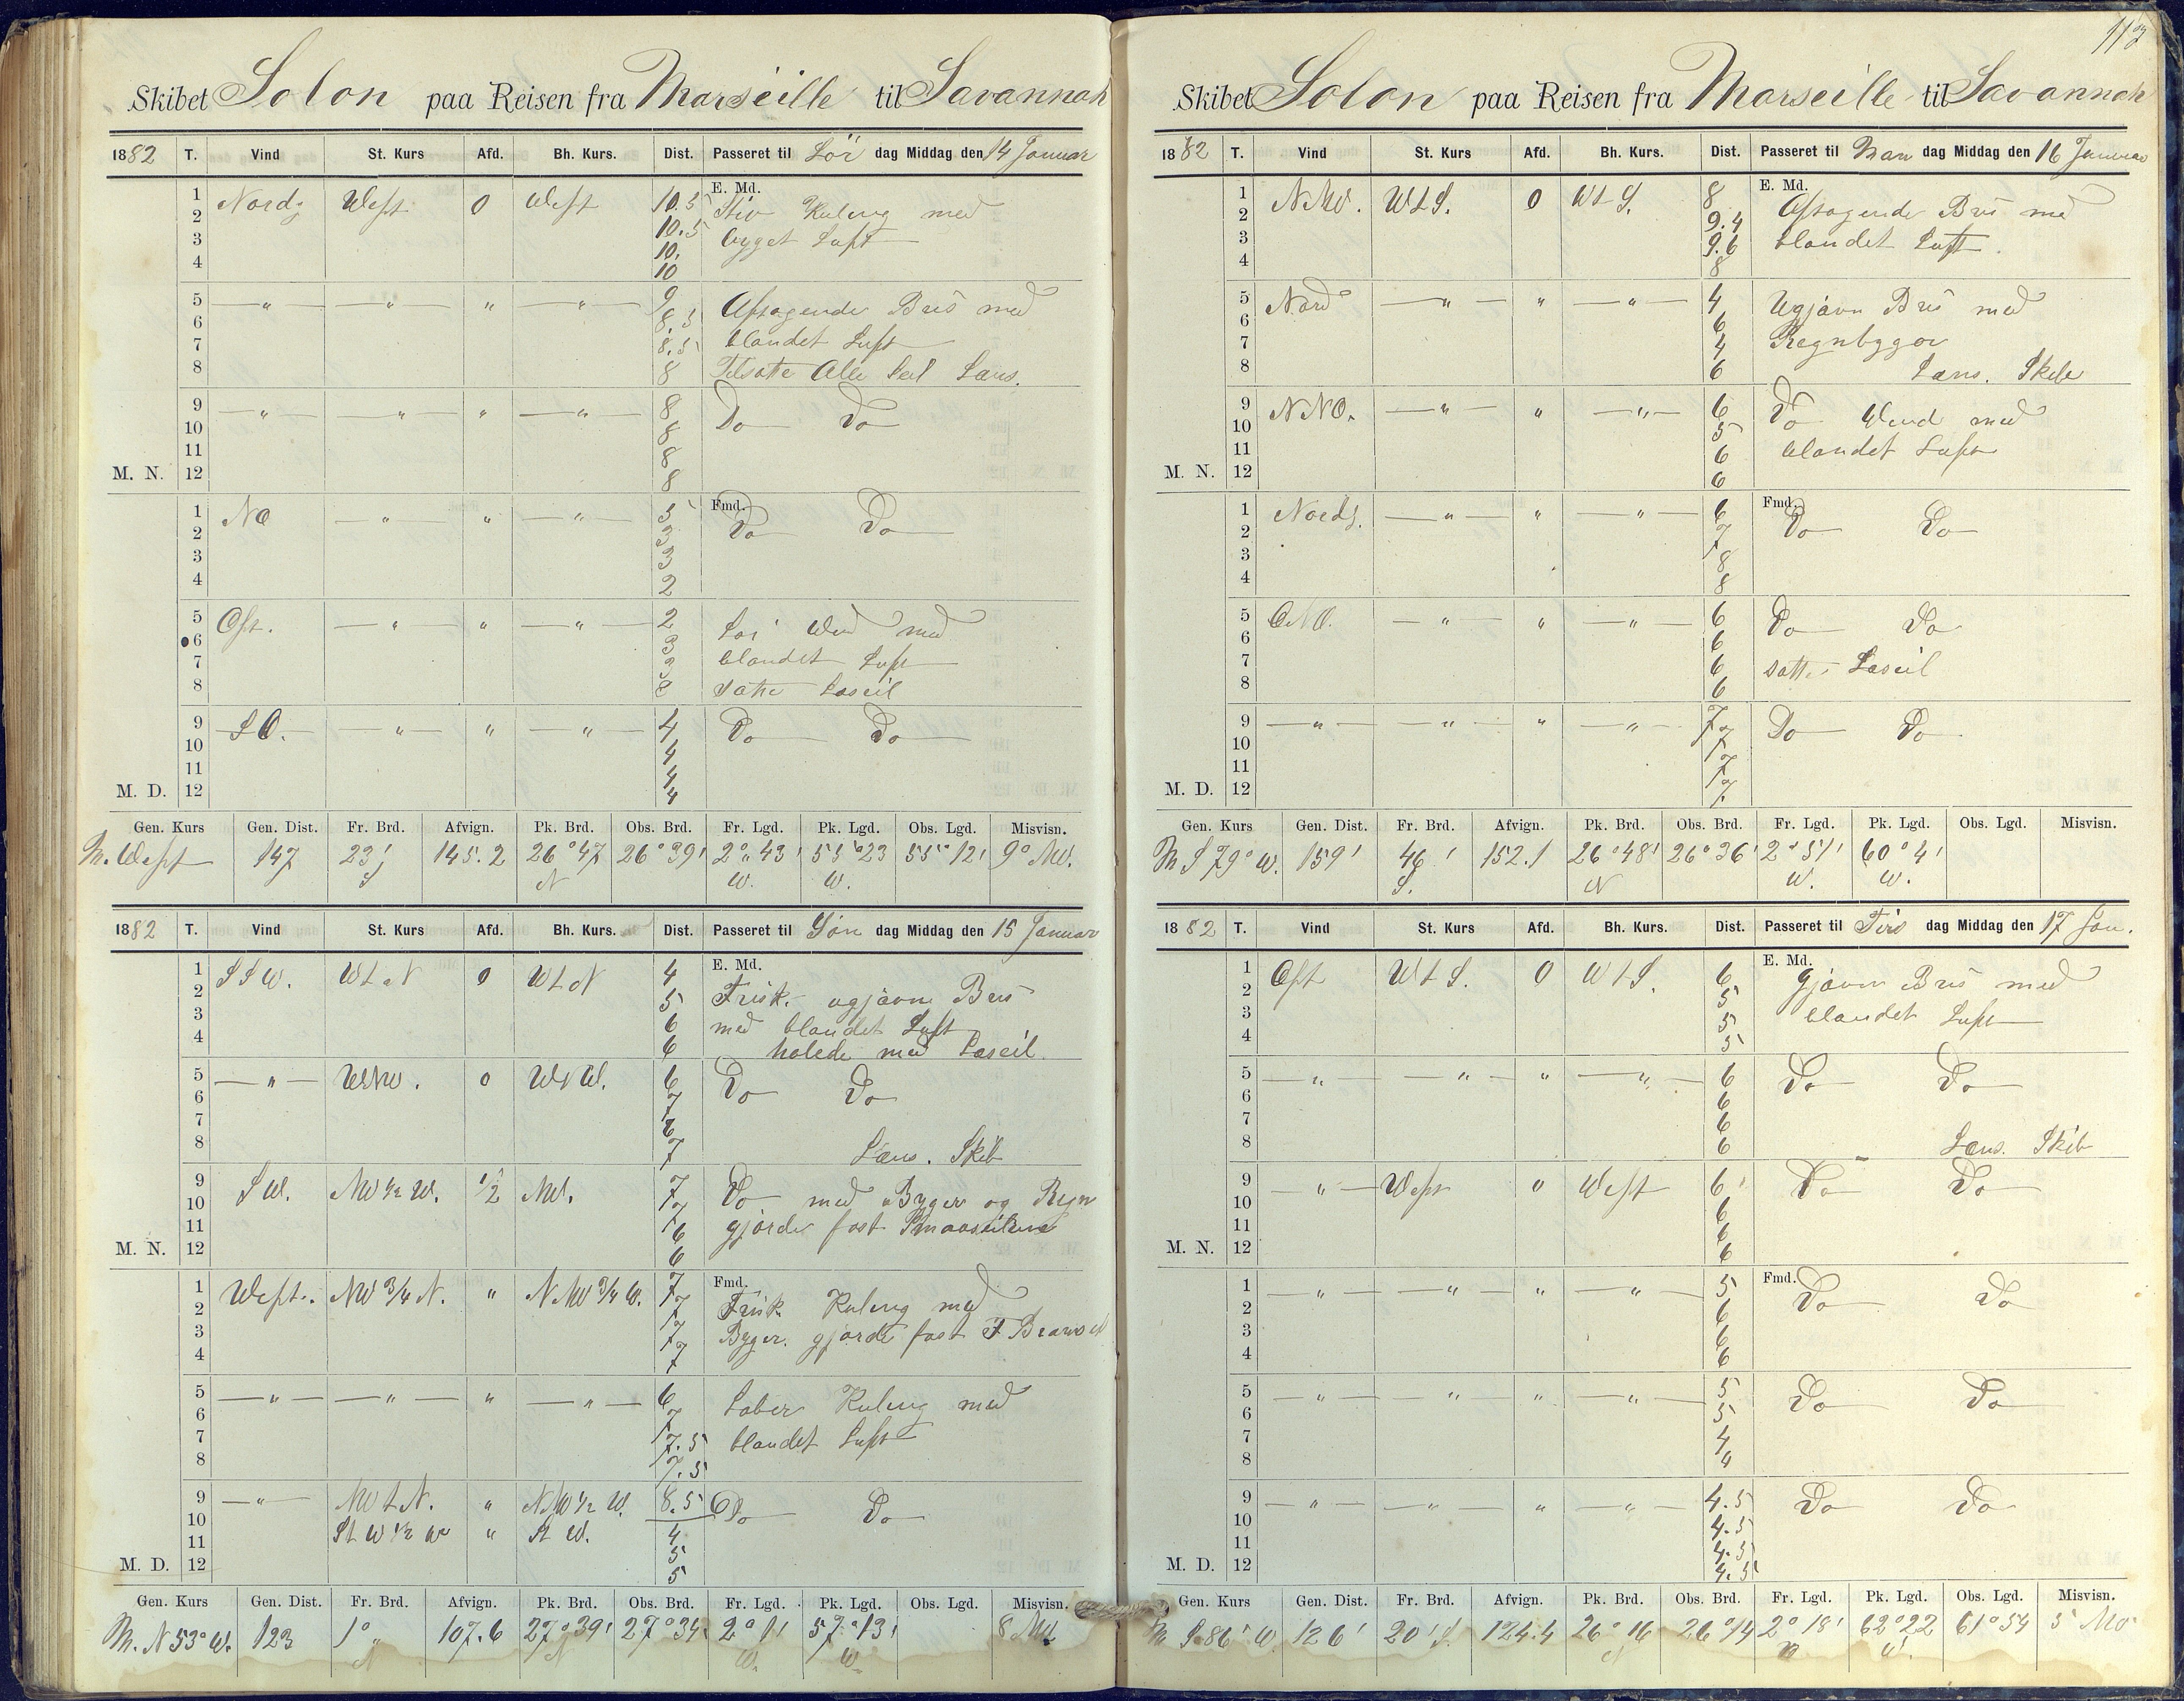 113
Skibet Solon paa Reisen fra Marseille til Savannah
1882 T. Vind St. Kurs Afd. Bh. Kurs. Dist. Passeret til Lör dag Middag den 14 Januar
E. Md.
1 Nordl West 0 West 10.5 Stiv Kuling med
2 10.5 byget Luft
3 10.
4 10
5 — " — — " — " — " — 9 Aftagende Bris med
6 8.5
7 8.5 blandet Luft
8 8 Tilsatte Alle Seil Læns.
9 — " — — " — " — " — 8 Do Do
10 8
11 8
M. N. 12 8
Fmd.
1 NO — " — " — " — 5 Do Do
2 3
3 3
4 2
5 Ost. — " — " — " — 2 Lör Vind med
6 3
7 3 blandet Luft
8 3 satte Læseil
9 SO. — " — " — " — 4 Do Do
10 4
11 4
M. D. 12 4
Gen. Kurs Gen. Dist. Fr. Brd. Afvign. Pk. Brd. Obs. Brd. Fr. Lgd. Pk. Lgd. Obs. Lgd. Misvisn.
M. West 147 23' S 145.2 26° 47 N 26° 39' 2° 43' W. 55° 23 W. 55° 12' 9° NW.
1882 T. Vind St. Kurs Afd. Bh. Kurs. Dist. Passeret til Søn dag Middag den 15 Januar
E. Md.
1 SSW. WtN 0 WtN 4 Frisk ugjævn Bris
2 5
3 6 med blandet Luft
4 6 halede ned Læseil
5 — " — WNW. 0 WNW. 6 Do Do
6 7
7 6
8 7 Læns. Skib
9 SW. NW ½ W. ½ NW. 7 Do med Byger og Regn
10 7
11 6 gjorde fast Smaaseilene
M. N. 12 6
Fmd.
1 West. NW ¾ N. " NNW ¾ W. 7 Frisk Kuling med
2 7
3 7 Byger. gjorde fast F
4 7
5 — " — — " — " — " — 6 Laber Kuling med
6 7
7 7.5 blandet Luft
8 7.5
9 — " — NWtN. " NNW ½ W. 8.5 Do Do
10 StW ½ W " St W. 4
11 5
M. D. 12 5
Gen. Kurs Gen. Dist. Fr. Brd. Afvign. Pk. Brd. Obs. Brd. Fr. Lgd. Pk. Lgd. Obs. Lgd. Misvisn.
M. N 53° W. 123 1° " N 107.6 27° 39' N 27° 34' 2° 1' W. 57° 13' W. 8 NW
Skibet Solon paa Reisen fra Marseille til Savannah
1882 T. Vind St. Kurs Afd. Bh. Kurs. Dist. Passeret til Man dag Middag den 16 Januar
E. Md.
1 NNW. WtS. 0 WtS. 8 Aftagende Bris med
2 9.4
3 9.6 blandet Luft.
4 8
5 Nord — " — " — " — 4 Ugjævn Bris med
6 6
7 4 Regnbyger
8 6 Læns. Skibe
9 NNO. — " — " — " — 6 Do Vind med
10 5
11 6 blandet Luft
M. N. 12 6
Fmd.
1 Nordl. — " — " — " — 6 Do Do
2 7
3 8
4 8
5 ONO. — " — " — " — 6 Do Do
6 6
7 6 satte Læseil
8 6
9 — " — — " — " — " — 7 Do Do
10 7
11 7
M. D. 12 7
Gen. Kurs Gen. Dist. Fr. Brd. Afvign. Pk. Brd. Obs. Brd. Fr. Lgd. Pk. Lgd. Obs. Lgd. Misvisn.
M S 79° W. 159' 46' S. 152.1 26° 48' N 26° 36' 2° 51' W. 60° 4' W.
1882 T. Vind St. Kurs Afd. Bh. Kurs. Dist. Passeret til Tirs dag Middag den 17 Jan.
E. Md.
1 Ost WtS. 0 WtS. 6 Gjævn Bris med
2 5
3 5 blandet Luft
4 5
5 — " — — " — " — " — 6 Do Do
6 6
7 6
8 6 Læns. Skib
9 — " — West 0 West 6 Do Do
10 6
11 6
M. N. 12 6
Fmd.
1 — " — — " — " — " — 5 Do Do
2 6
3 6
4 6
5 — " — — " — " — " — 5 Do Do
6 5
7 4
8 4
9 — " — — " — " — " — 4.5 Do Do
10 4.5
11 4.5
M. D. 12 4.5
Gen. Kurs Gen. Dist. Fr. Brd. Afvign. Pk. Brd. Obs. Brd. Fr. Lgd. Pk. Lgd. Obs. Lgd. Misvisn.
M S. 86° W. 126' 20' S. 124.4 26° 16 N 26° 14 2° 18' 62° 22 W. 61° 54 5